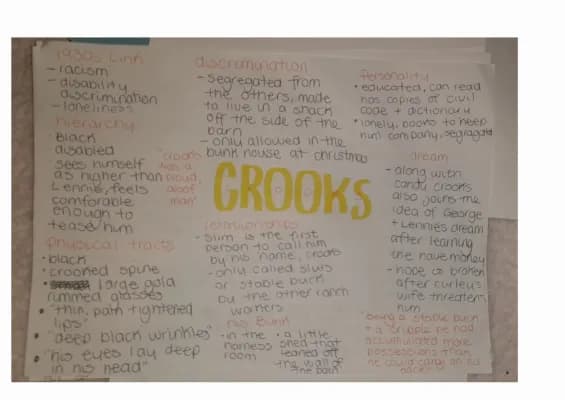 1930s Link
- racism
- disability
discrimination
- loneliness
hierarchy
black
disabled
sees himself
as higher than
Lennie, feels
comforable
enough to
tease him
"crooks
was a
proud,
aloof
man"
physical traits
• black
• crooked spine
• large gold
rimmed glasses
• "thin, pain tightened
lips"
• "deep black wrinkles"
• "his eyes lay deep
in his head"
discrimination
- segregated from
the others, made
to live in a shack
off the side of the
barn
- only allowed in the
bunk house at christmas
CROOKS
relationships
- slim is the first
person to call him
by his name, crooks
- only called slurs
or stable buck
by the other ranch
workers
his bunk
- in the
harness
room
• a little
shed that
leaned off
the wall of
the barn
Personality
• educated, can read
has copies of civil
code + dictionary
• lonely, books to keep
him company, segregated
dream
- along with
candy crooks
also joins the
idea of George
+ Lennies dream
after learning
the have money
- hope is broken
after curleys
wife threatens
him
"being a stable buck
+ a cripple he had
accumulated more
possessions than
he could carry on his
back"